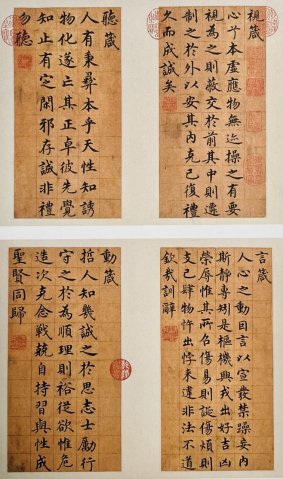 視箴
心兮本虛應物無迹操之有要
視為之則蔽交於前其中則遷
制之於外以安其内克己復禮
久而成誠矣
聽箴
人有秉彝本乎天性知誘
物化遂亡其正卓彼先覺
知止有定閑邪存誠非禮
勿聽
言箴
人心之動因言以宣發禁躁妄内
斯静專矧是樞機興戎出好吉凶
榮辱惟其所召傷易則誕傷煩則
支己肆物忤出悖来違非法不道
欽哉訓辭
動箴
哲人知幾誠之於思志士勵行
守之於為順理則裕從欲惟危
造次克念戰兢自持習與性成
聖賢同歸